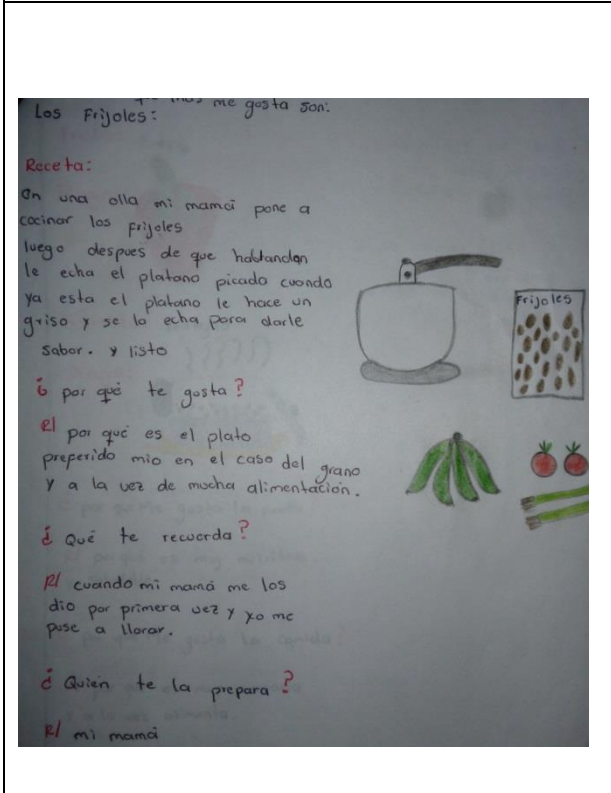 que mas me gusta son:
Los Frijoles:
Receta:
En una olla mi mamá pone a
cocinar los frijoles
luego despues de que hablandan
le echa el platano picado cuando
ya esta el platano le hace un
griso y se lo echa para darle
sabor. y listo
Frijoles
¿ por qué te gusta?
R/ por qué es el plato
preperido mio en el caso del grano
y a la vez de mucha alimentación.
¿ Qué te recuerda?
R/ cuando mi mamá me los
dio por primera vez y yo me
puse a llorar.
¿ Quién te la prepara?
R/ mi mamá